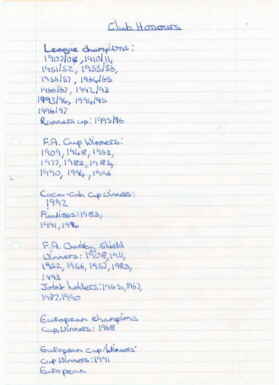 Club Honours
League champions:
1907/08, 1910/11,
1951/52, 1955/56,
1956/57, 1964/65
1966/67, 1992/93
1993/94, 1995/96
1996/97
Runners up: 1995/96
F.A. Cup Winners:
1909, 1948, 1963,
1977, 1983, 1985,
1990, 1994, 1996
Coca-Cola Cup Winners:
1992
Finalists: 1983,
1991, 1994
F.A. Charity Shield
Winners: 1908, 1911,
1952, 1956, 1957, 1983,
1993
Joint holders: 1965, 1967,
1977, 1990
European champions
Cup Winners: 1968
European Cup Winners'
Cup Winners: 1991
European